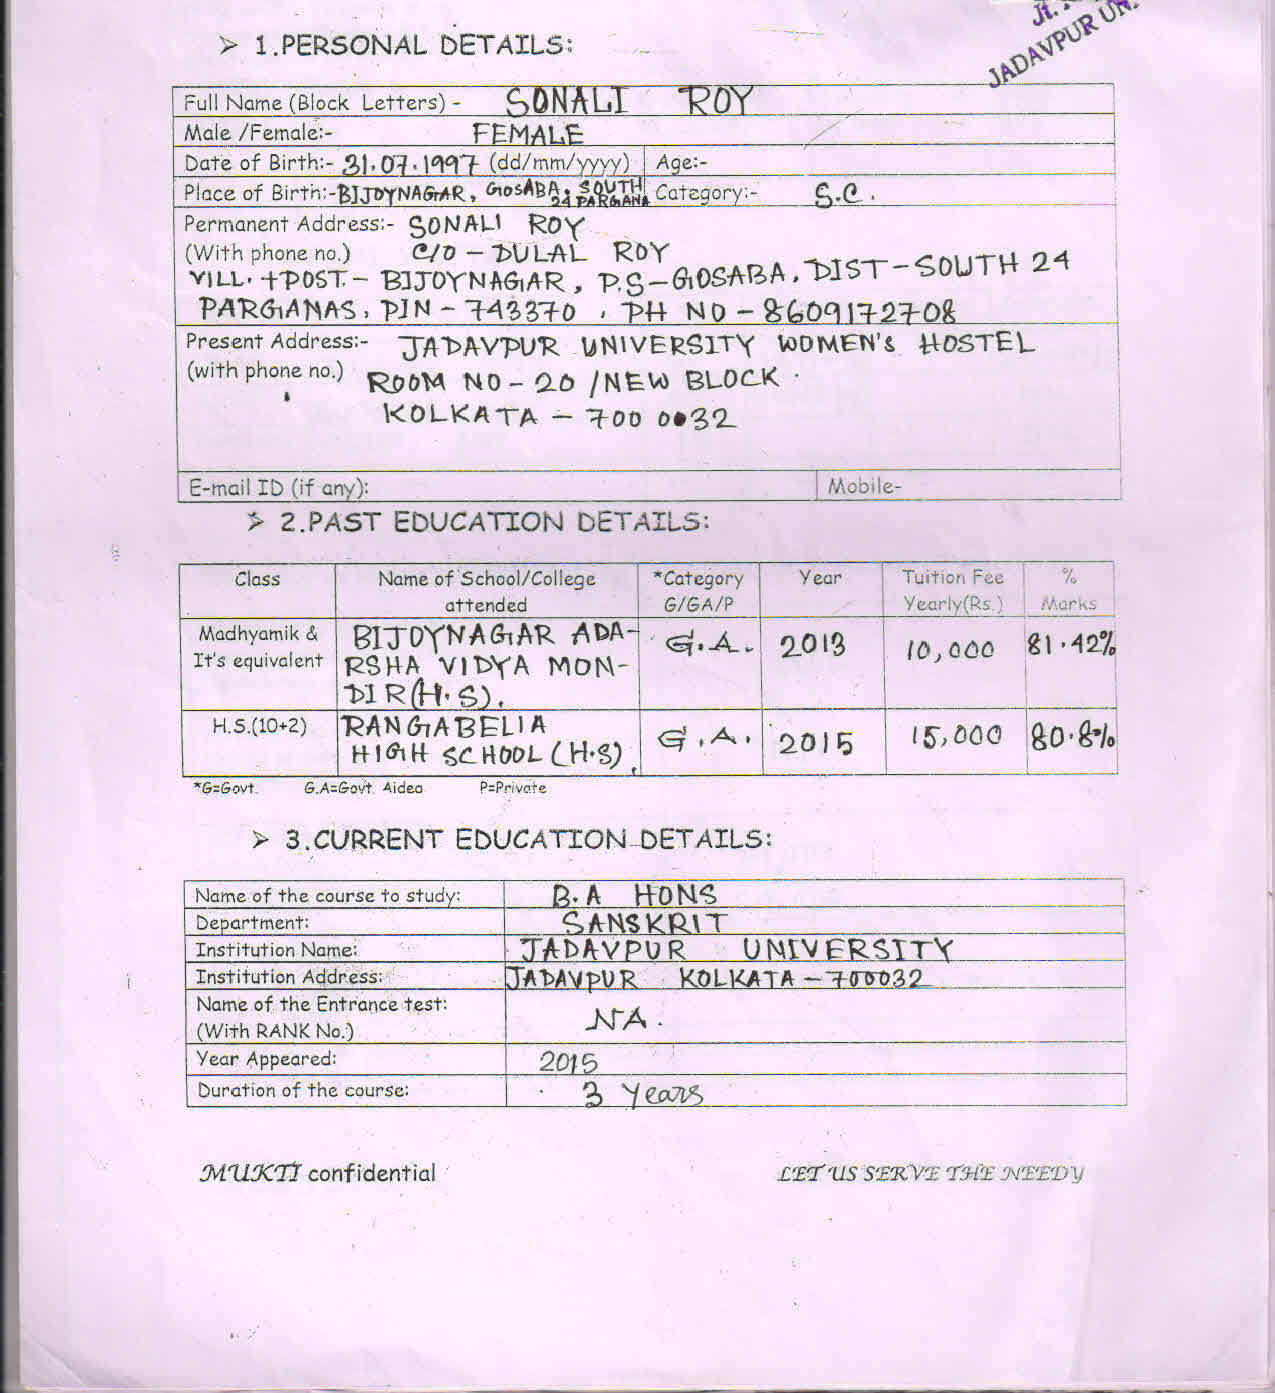 Jt.
JADAVPUR UN
➢ 1.PERSONAL DETAILS:
Full Name (Block Letters) - SONALI ROY
Male /Female:- FEMALE
Date of Birth:- 31.07.1997 (dd/mm/yyyy) Age:-
Place of Birth:- BIJOYNAGAR, GOSABA, SOUTH 24 PARGANA Category:- S.C.
Permanent Address:- SONALI ROY
(With phone no.) C/O - DULAL ROY
VILL. +POST. - BIJOYNAGAR, P.S - GOSABA, DIST - SOUTH 24
PARGANAS, PIN - 743370 , PH NO - 8609172708
Present Address:- JADAVPUR UNIVERSITY WOMEN'S HOSTEL
(with phone no.) ROOM NO - 20 /NEW BLOCK .
KOLKATA - 700 0032
E-mail ID (if any): Mobile-
➢ 2.PAST EDUCATION DETAILS:
Class Name of School/College attended *Category G/GA/P Year Tuition Fee Yearly(Rs.) % Marks
Madhyamik & It's equivalent BIJOYNAGAR ADA- G.A. 2013 10,000 81.42%
RSHA VIDYA MON-
DIR(H.S).
H.S.(10+2) RANGABELIA G.A. 2015 15,000 80.8%
HIGH SCHOOL (H.S).
*G=Govt. G.A=Govt. Aided P=Private
➢ 3.CURRENT EDUCATION DETAILS:
Name of the course to study: B.A HONS
Department: SANSKRIT
Institution Name: JADAVPUR UNIVERSITY
Institution Address: JADAVPUR KOLKATA - 700032
Name of the Entrance test:
(With RANK No.) NA.
Year Appeared: 2015
Duration of the course: 3 Years
MUKTI confidential LET US SERVE THE NEEDY